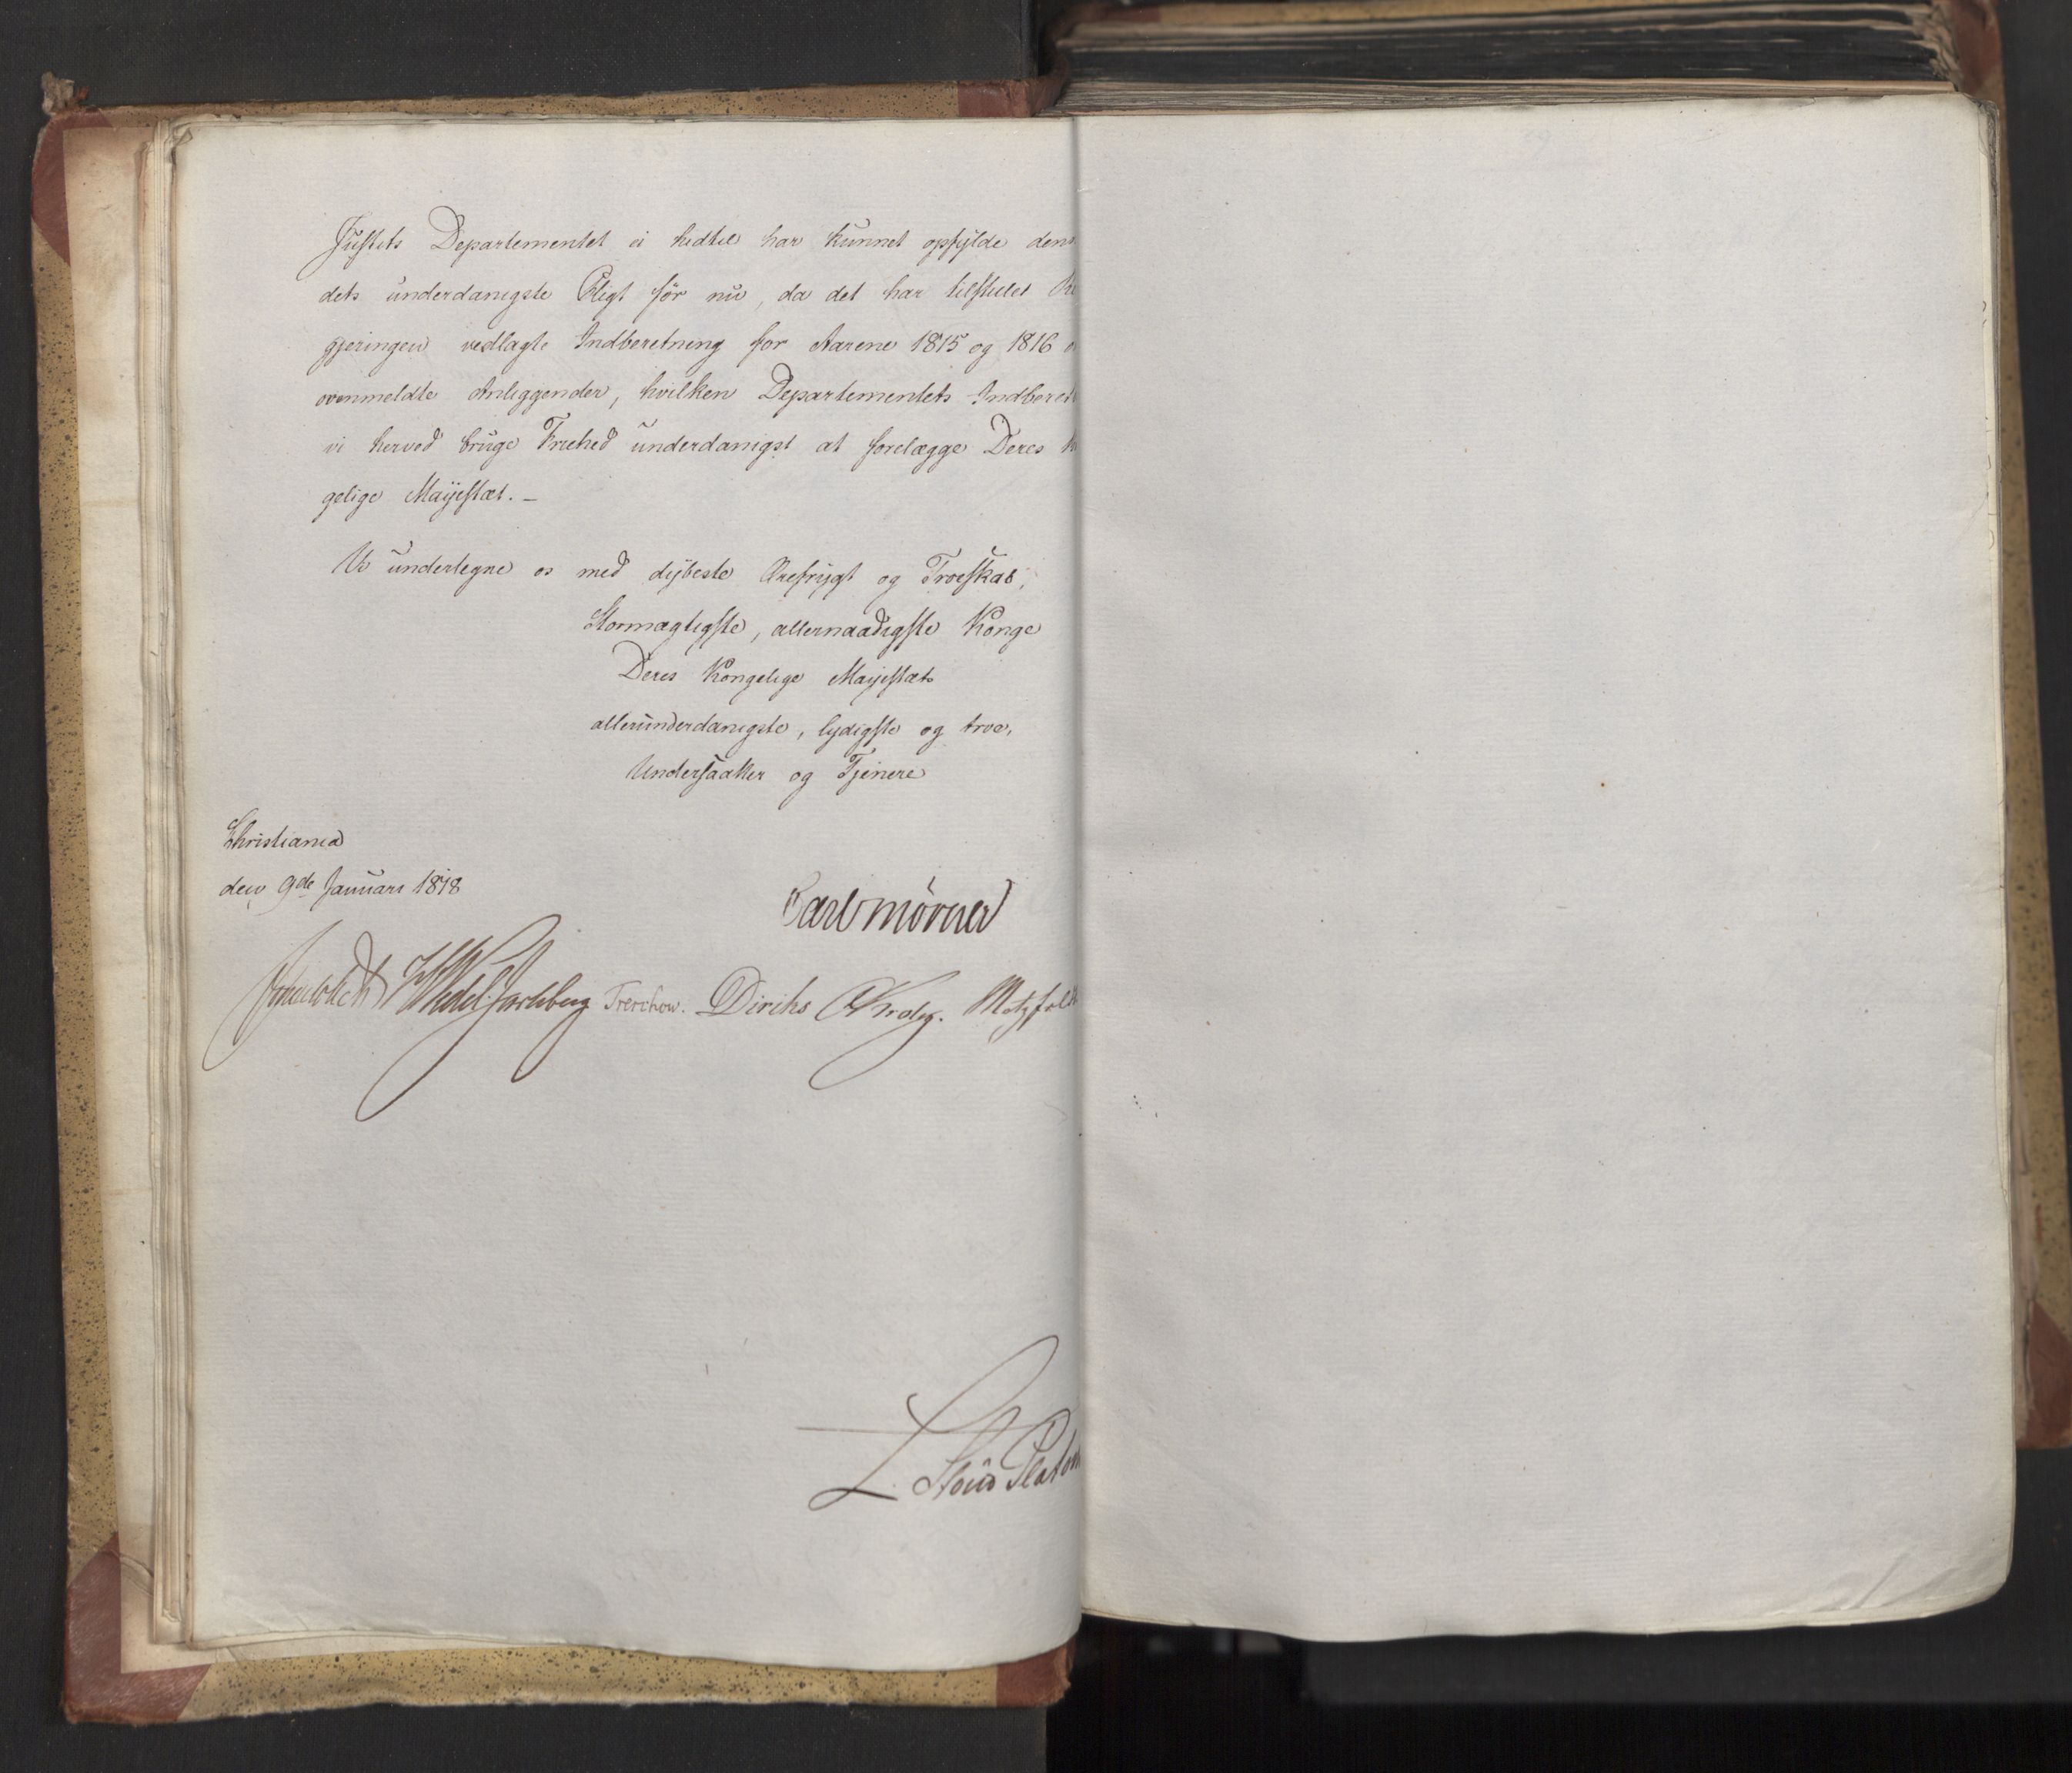 Justits Departementet ei hidtil har kunnet opfylde den
dets underdanigste Pligt før nu, da det har tilstillet Re
gjeringen vedlagte Indberetning for Aarene 1815 og 1816 o
ovenmeldte Anliggender, hvilken Departementets Indberet
vi herved bruge Friehed underdanigst at forelægge Deres K
gelige Majestæt. –
Vi undertegne os med dybeste Ærefrygt og Troeskab,
Stormægtigste, allernaadigste Konge
Deres Kongelige Majestæts
allerunderdanigste, lydigste og troe,
Undersaatter og Tjenere
Christiania
den 9de Januari 1818
Carl Mörner
Sommerhielm HWedel Jarlsberg Treschow. Diriks Krog. Motzfeldt
L. Stoud Platou